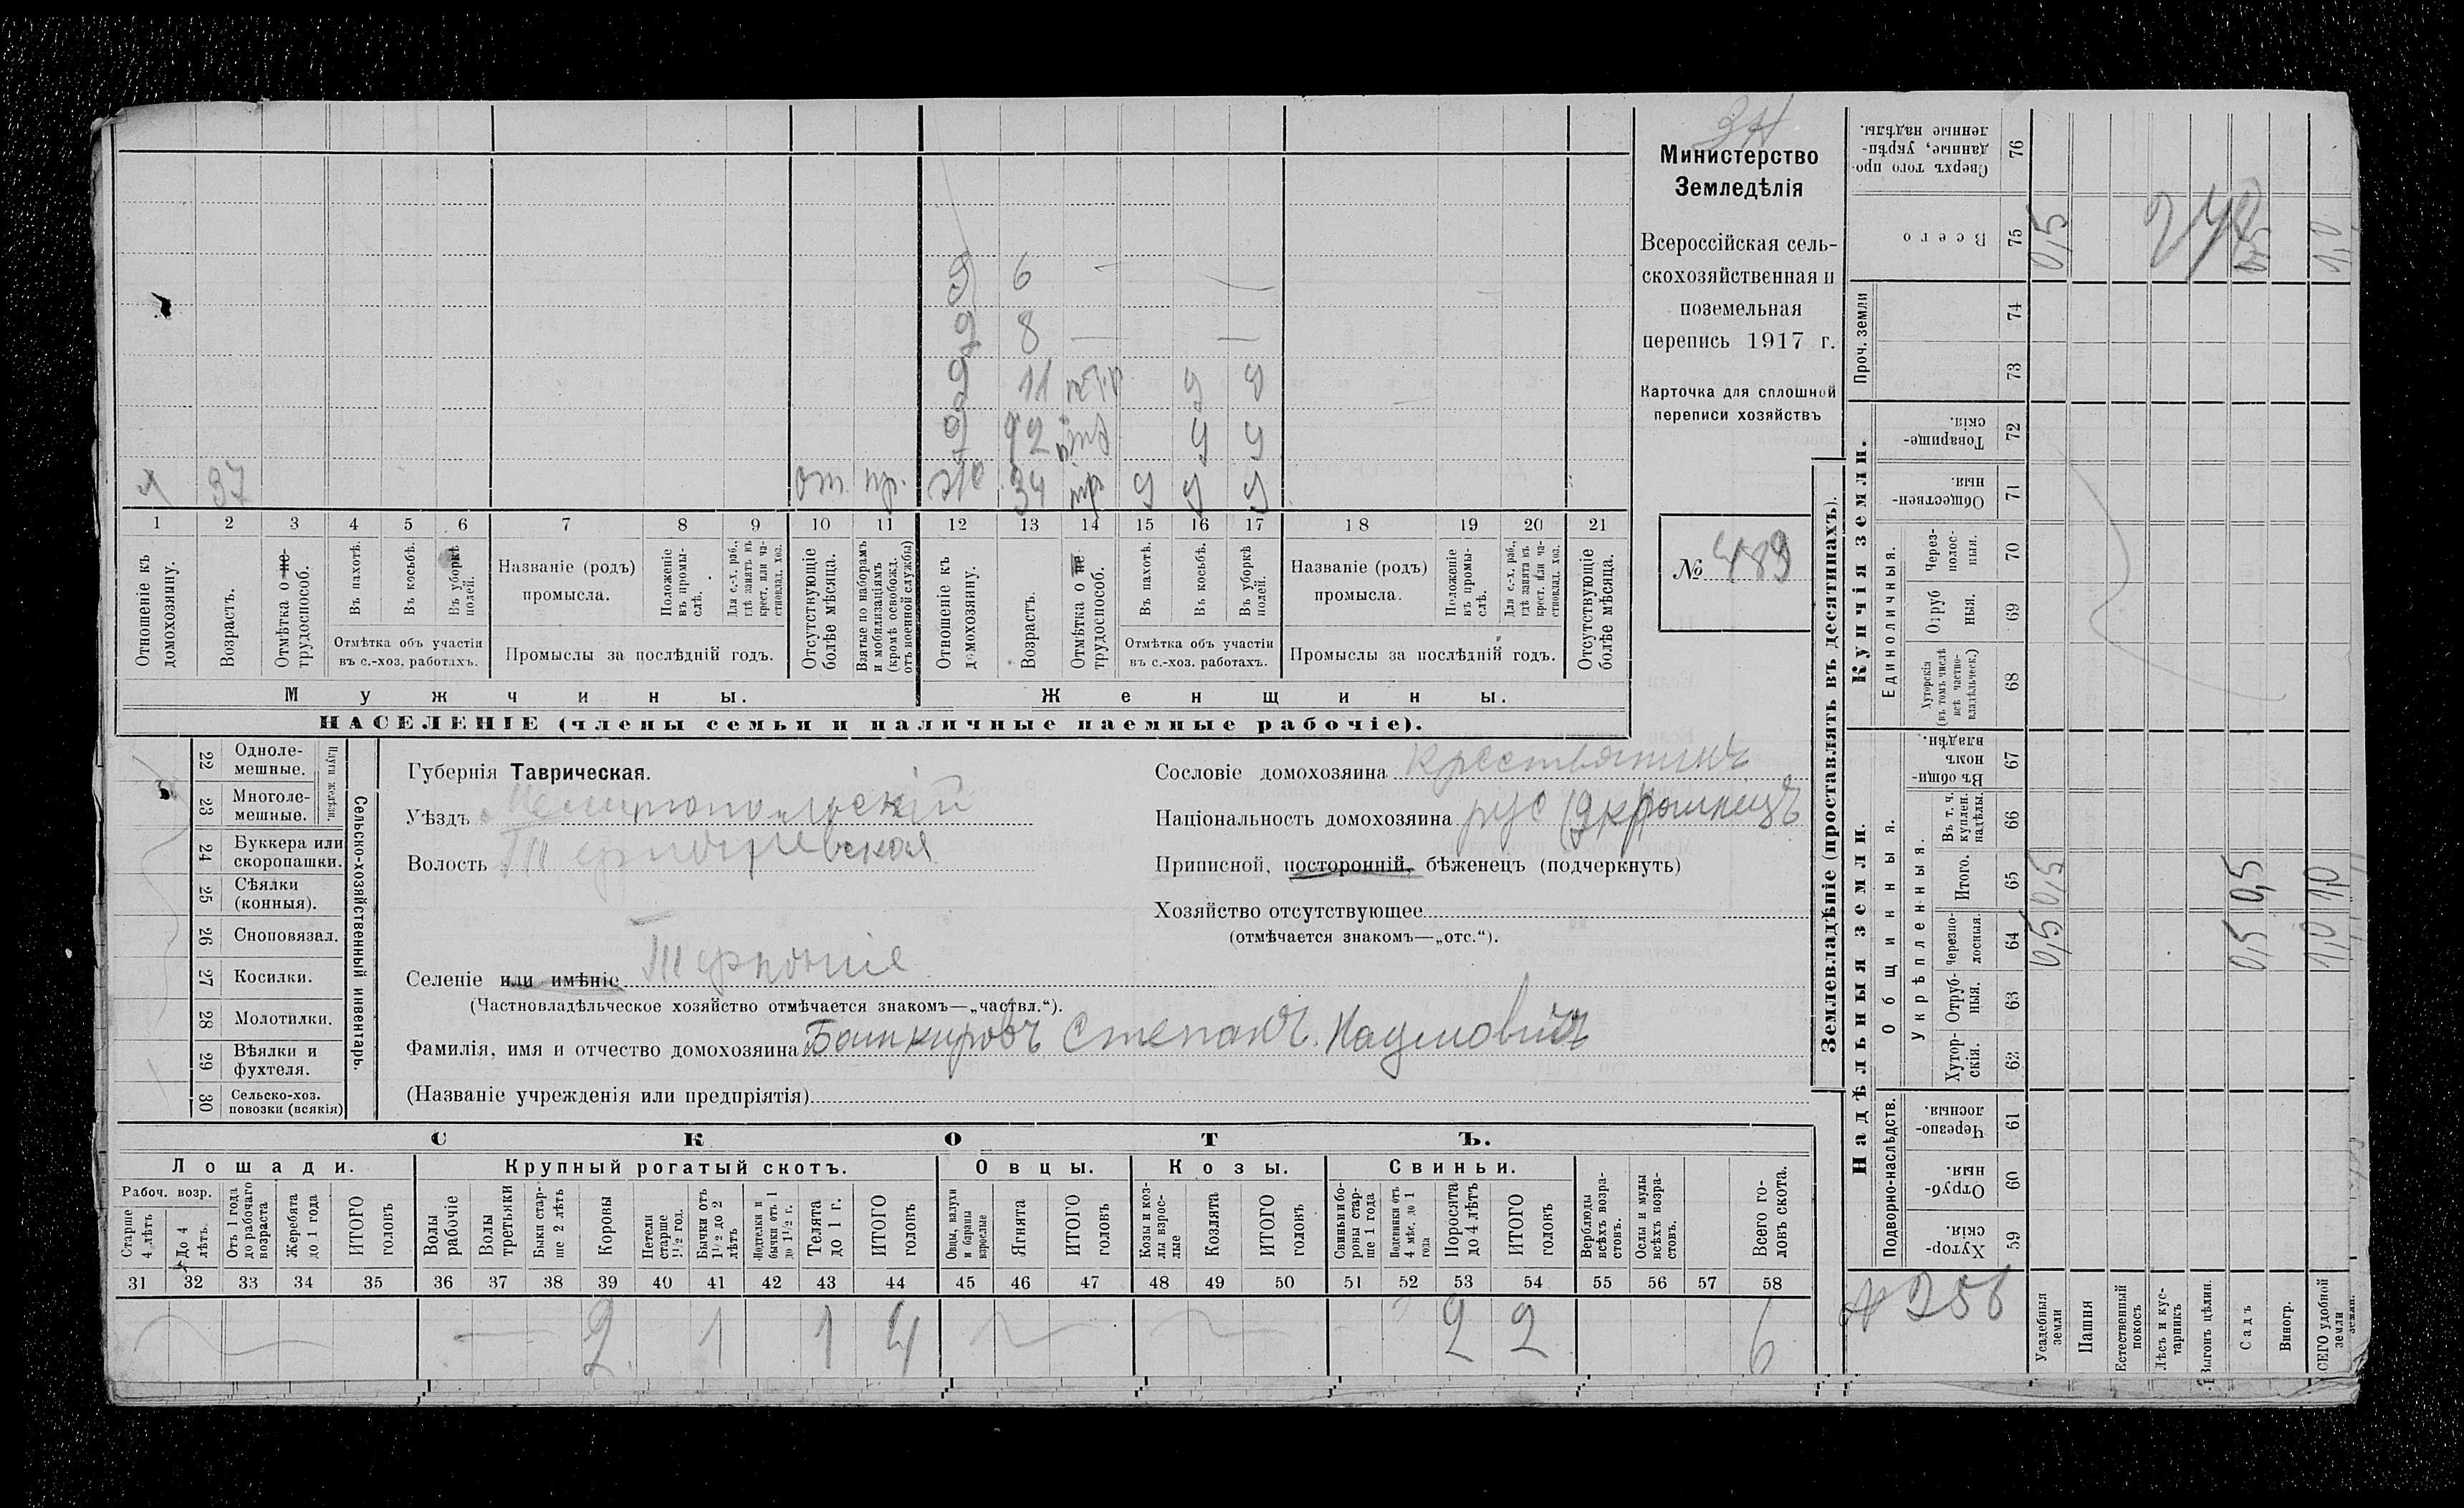 Министерство
Земледѣлія
Всероссійская сель-
скохозяйственная и
поземельная
перепись 1917 г.
Карточка для сплошной
переписи хозяйствъ
№ 489
д 6 — —
д 8 — —
д 11
д 12
я 37 от. пр. 34
1 2 3 4 5 6 7 8 9 10 11 12 13 14 15 16 17 18 19 20 21
Отношеніе къ домохозяину.
Возрастъ.
Отмѣтка о не-трудоспособ.
Въ пахотѣ.
Въ косьбѣ.
Въ уборкѣ полей.
Отмѣтка объ участіи въ с.-хоз. работахъ.
Названіе (родъ) промысла.
Положеніе въ промы-слѣ.
Для с.-х. раб., гдѣ занятъ въ крест. или ча-стновлад. хоз.
Промыслы за послѣдній годъ.
Отсутствующіе болѣе мѣсяца.
Взятые по наборамъ и мобилизаціямъ (кромѣ освобожд. отъ военной службы)
Отношеніе къ домохозяину.
Возрастъ.
Отмѣтка о не трудоспособ.
Въ пахотѣ.
Въ косьбѣ.
Въ уборкѣ полей.
Отмѣтка объ участіи въ с.-хоз. работахъ.
Названіе (родъ) промысла.
Положеніе въ промы-слѣ.
Для с.-х. раб., гдѣ занята въ крест. или ча-стновлад. хоз.
Промыслы за послѣдній годъ.
Отсутствующіе болѣе мѣсяца.
Мужчины. Женщины.
НАСЕЛЕНІЕ (члены семьи и наличные наемные рабочіе).
22 Одноле-мешные.
23 Многоле-мешные.
Плуги желѣзн.
24 Буккера или скоропашки.
25 Сѣялки (конныя).
26 Сноповязал.
27 Косилки.
28 Молотилки.
29 Вѣялки и фухтеля.
30 Сельско-хоз. повозки (всякія)
Сельско-хозяйственный инвентарь.
Губернія Таврическая.
Уѣздъ Мелитопольскій
Волость Терпѣньевская
Селеніе или имѣніе Терпѣніе
(Частновладѣльческое хозяйство отмѣчается знакомъ—„частвл.“).
Фамилія, имя и отчество домохозяина Башкировъ Степанъ Наумовичъ
(Названіе учрежденія или предпріятія)
Сословіе домохозяина крестьянинъ
Національность домохозяина рус (украинецъ
Приписной, посторонній, бѣженецъ (подчеркнуть)
Хозяйство отсутствующее
(отмѣчается знакомъ—„отс.“).
СКОТЪ.
Лошади. Крупный рогатый скотъ. Овцы. Козы. Свиньи.
Рабоч. возр.
Старше 4 лѣтъ
До 4 лѣтъ.
Отъ 1 года до рабочаго возраста
Жеребята до 1 года
ИТОГО головъ
Волы рабочіе
Волы третьяки
Быки стар-ше 2 лѣтъ
Коровы
Нетели старше 1½ год.
Бычки отъ 1½ до 2 лѣтъ
Подтелки и бычки отъ 1 до 1½ г.
Телята до 1 г.
ИТОГО головъ
Овцы, валухи и бараны взрослые
Ягнята
ИТОГО головъ
Козы и коз-лы взрос-лые
Козлята
ИТОГО головъ
Свиньи и бо-ровы стар-ше 1 года
Подсвинки отъ 4 мѣс. до 1 года
Поросята до 4 лѣтъ
ИТОГО головъ
Верблюды всѣхъ возра-стовъ.
Ослы и мулы всѣхъ возра-стовъ.
Всего го-ловъ скота.
31 32 33 34 35 36 37 38 39 40 41 42 43 44 45 46 47 48 49 50 51 52 53 54 55 56 57 58
2 1 1 4 2 2 6
Землевладѣніе (проставлять въ десятинахъ).
Купчія земли.
Надѣльныя земли.
Проч. земли
Единоличныя.
Общинныя.
Укрѣпленныя.
Подворно-наслѣдств.
Сверхъ того про-данные, укрѣп-ленные надѣлы. 76
Всего 75 0,5 1,0
74
73
Товарище-скія. 72
Обществен-ныя. 71
Через-полос-ныя. 70
Отруб ныя. 69
Хуторскія (въ томъ числѣ всѣ частно-владѣльческ.) 68
Въ общи-номъ владѣн. 67
Въ т. ч. куплен. надѣлы. 66
Итого. 65 0,5 0,5 1,0
Черезпо-лосныя. 64 0,5 0,5 1,0
Отруб-ныя. 63
Хутор-скія. 62
Черезпо-лосныя. 61
Отруб-ныя. 60
Хутор-скія. 59
Усадебныя земли
Пашня
Естественный покосъ
Лѣсъ и кус-тарникъ
Выгонъ цѣлин.
Садъ
Виногр.
СЕГО удобной земли